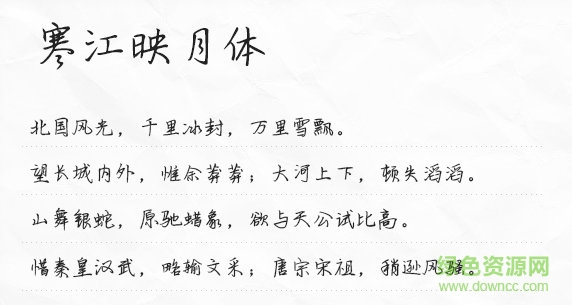 寒江映月体
北国风光，千里冰封，万里雪飘。
望长城内外，惟余莽莽；大河上下，顿失滔滔。
山舞银蛇，原驰蜡象，欲与天公试比高。
惜秦皇汉武，略输文采；唐宗宋祖，稍逊风骚。
绿色资源网
www.downcc.com